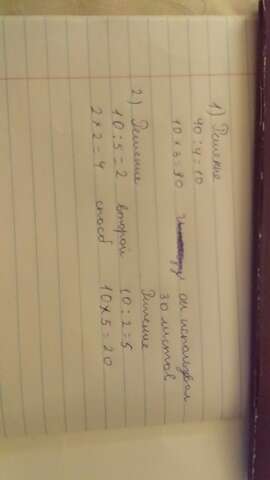 1) Решение
40:4=10
10×3=30 он использовал
30 листов
2) Решение
10:5=2 второй
2×2=4 способ
Решение
10:2=5
10×5=20